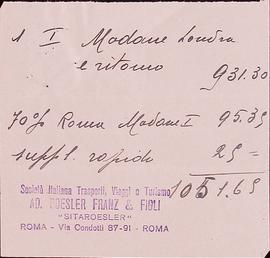 1 I Modane Londra
e ritorno
931.30
70% Roma Modane I 95.35
suppl. rapido 25=
1051.65
Società Italiana Trasporti, Viaggi e Turismo
AD. ROESLER FRANZ & FIGLI
"SITAROESLER"
ROMA - Via Condotti 87-91 - ROMA